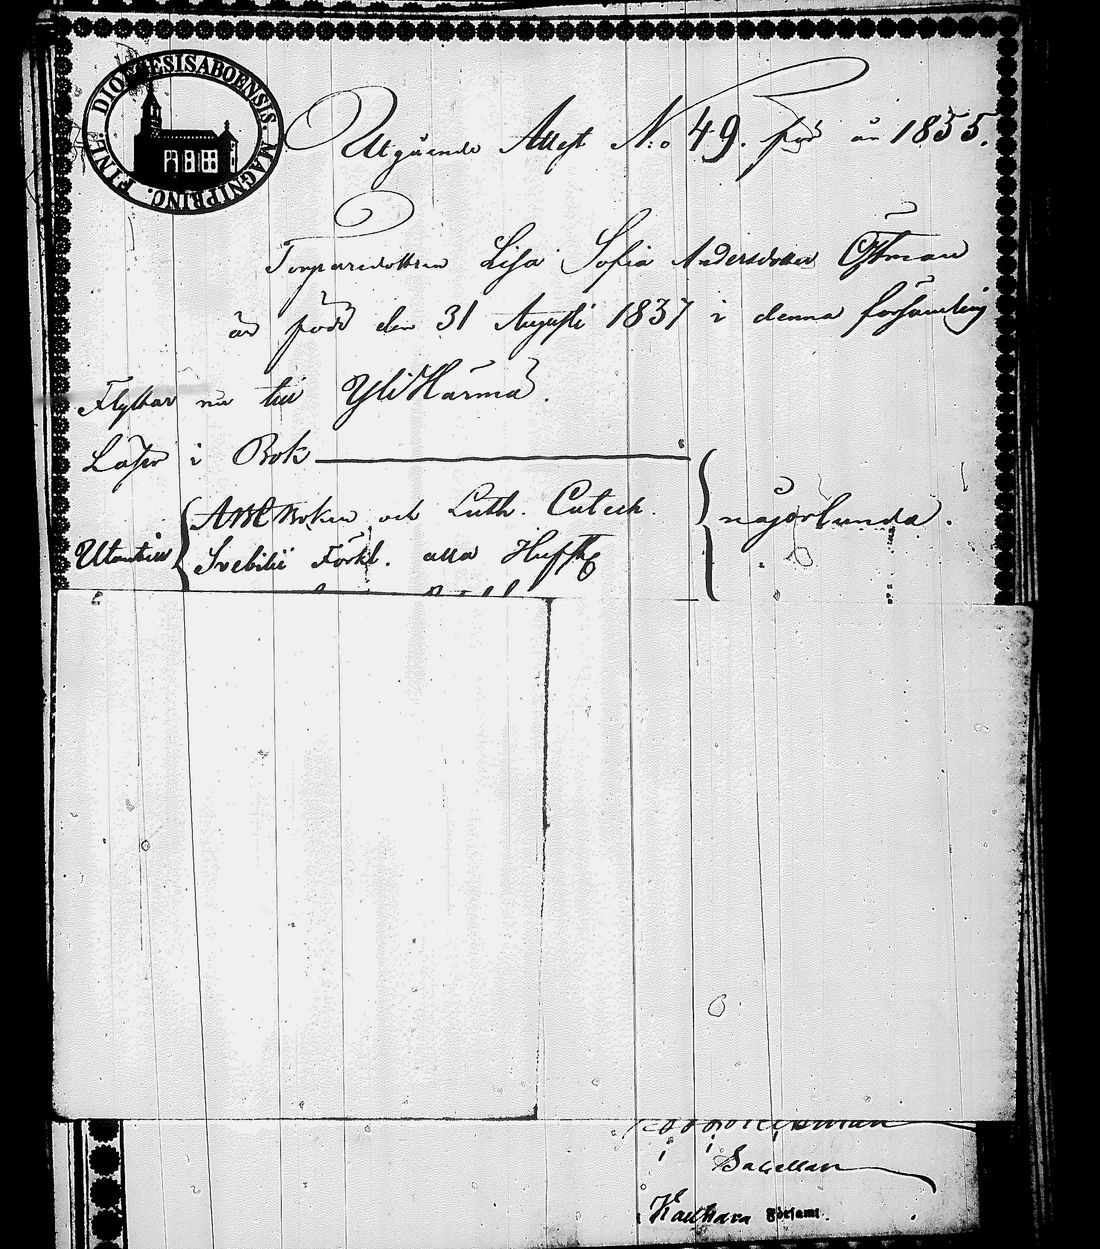 DIOECESIS ABOENSIS. MAGNI PRINC. FINL.
Utgående Attest N:o 49. för år 1855.
Torparedottren Lisa Sofia Andersdotter Östman
är född den 31 Augusti 1837 i denna församling
Flyttar nu till Yli Härmä.
Läser i Bok
ABC Boken och Luth. Catech.
någorlunda.
Utantill
Svebilii Förkl. alla Hufst
Sacellan
Församl.